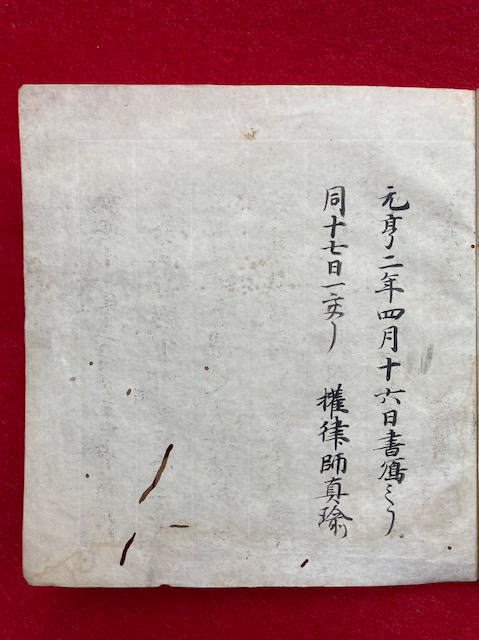 元亨二年四月十六日書写之了
同十七日一交了 権律師真瑜